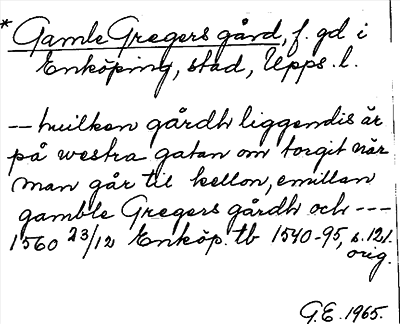 * Gamle Gregers gård, f. gd i
Enköping, stad, Upps. l.
-- huilken gårdh liggendis är
på westra gatan om torgit när
man går til kellon, emillan
gamble Gregers gårdh och ---
1560 23/12 Enköp. tb 1540-95, s. 121.
orig.
G.E. 1965.